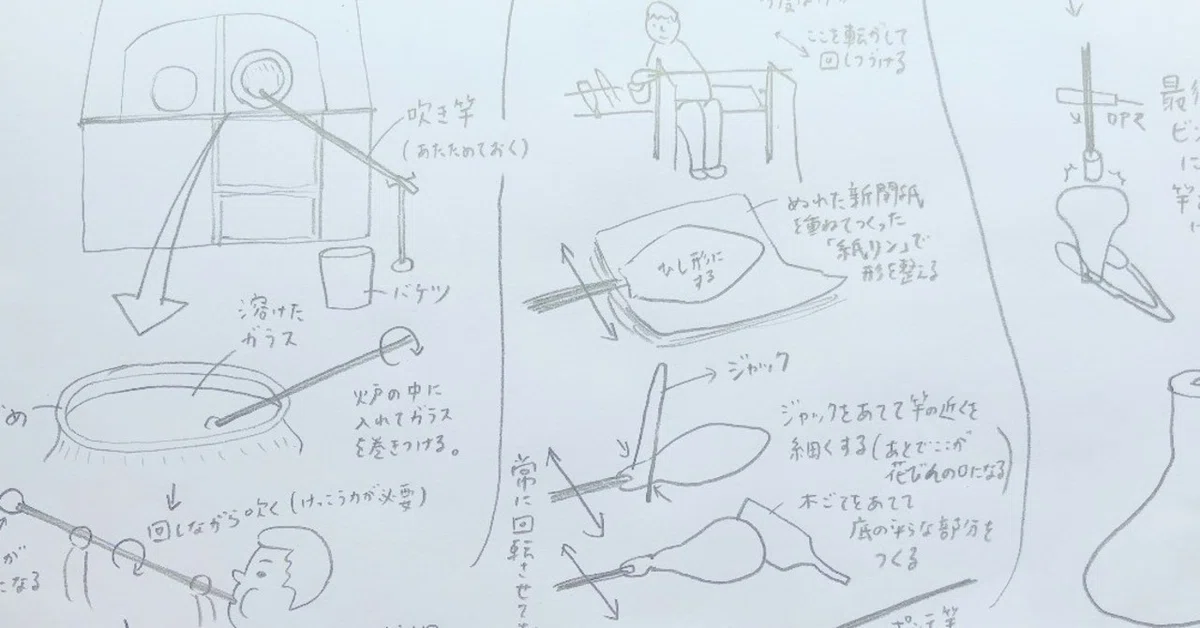 吹き竿
(あたためておく)
バケツ
溶けた
ガラス
火戸の中に
入れてガラス
を巻きつける。
回しながら吹く(けっこう力が必要)
が
になる
ここを転がして
回しつづける
ぬれた新聞紙
を重ねてつくった
「紙リン」で
形を整える
ひし形に
する
ジャック
ジャックをあてて竿の近くを
細くする(あとでここが
花びんの口になる)
木ごてをあてて
底の平らな部分を
つくる
常に回転させて
ポンテ竿